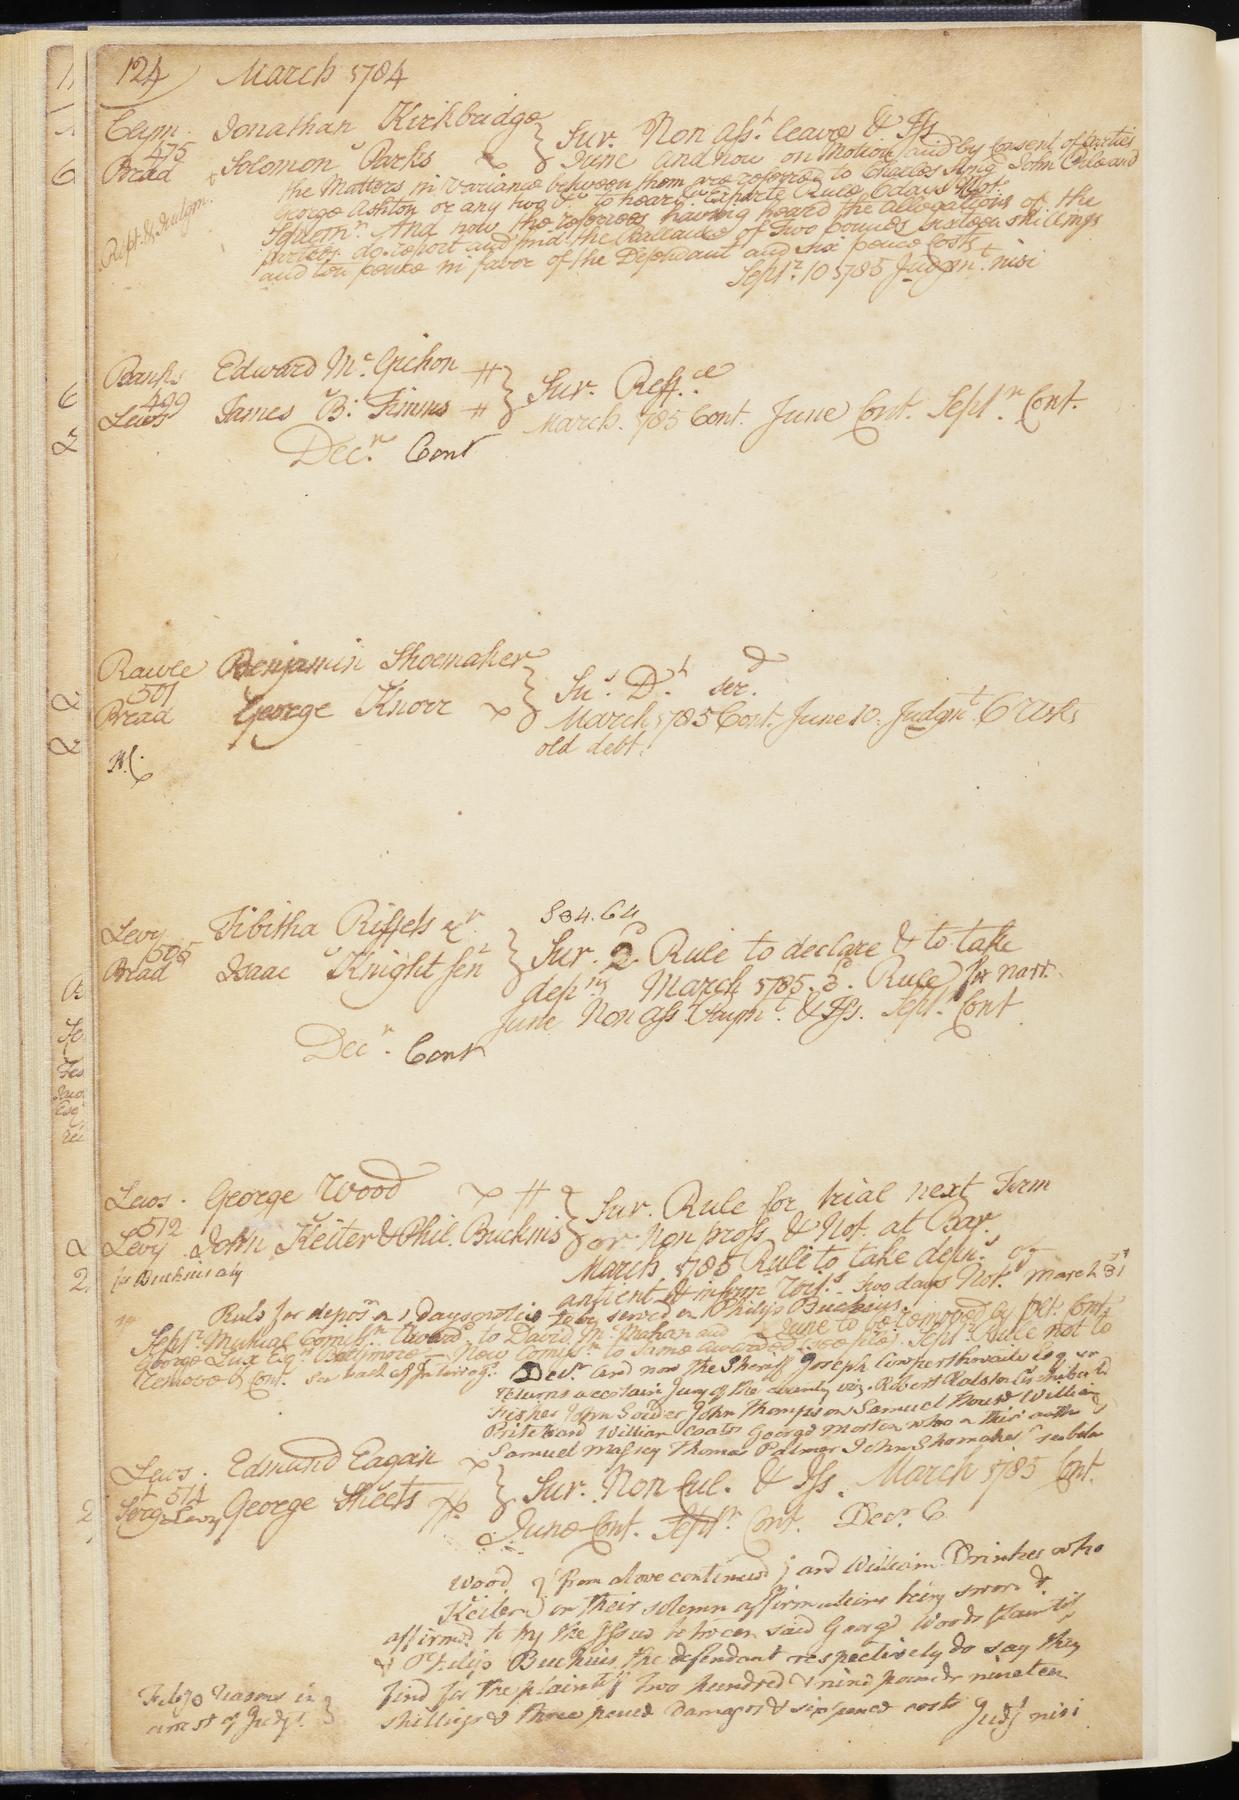 124 March 1784
Clym. Jonathan Kirkbridge } Sur. Non asst. leave & Iss
475
Brad Solomon Parks June and now on Motion and by Consent of parties
the Matters in variance between them are referred to Charles King John Cole and
George Ashton or any two &c. to hear &c. Exparte Rule 6 days Not.
Rept. & Judgm.
And now the referrees having heard the allegations of the
parties do report and find the Ballance of Two pounds sixteen shillings
and ten pence in favor of the Defendant and six pence Costs
Sept. 10 1785 Judgmt. nisi
Banks Edward Mc. Gichon # } Sur. Reff.ce
499
Laws James B. Timms # March. 1785 Cont. June Cont. Septr. Cont.
Decr. Cont
Rawle Benjamin Shoemaker } Su. D. ser.d
501
Brad George Knorr March 1785 Cont. June 10. Judgmt. 6 Wks
old debt.
Levy Tibitha Riffets } 834.64
505
Brad Isaac Knight Senr Sur. 2d Rule to declare & to take
depns March 1785. 3d. Rule for narr.
June Non asst. Paymt. & Iss. Septr. Cont
Decr. Cont
Laws. George Wood # } Sur. Rule for trial next Term
512
Levy John Keiter & Phil. Buckius or Non pross & Not. at Bar.
for Buckius only March 1785 Rule to take depns of
antient & infirm Wits. Two days Not. March 31st
Rule for deposn. on 1 Days notice to be served on Philip Buckius
Septr. Mutual Comissn. to David Mc. Mahan and June to be removed by plt. Cont.
George Lux Esqr. Baltimore New Comissn. to Same awarded Septr. Rule not to
remove & Cont. see back of Interrogs. Decr. and now the Sheriff Joseph Cowperthwaite Esqr
returns a certain Jury of the county viz. Robert Ralston
Fisher John Souder John Thompson Samuel William
Pritchard William Coats George Morton who on their oaths &
Samuel Massey Thomas Palmer John Shomaker see below
Laws. Edmund Eagan } Sur. Non Cul. & Iss. March 1785 Cont.
514
Serg. Levy George Sheets June Cont. Septr. Cont. Decr. C
Wood } from above continued; and William Drinker who
Keiter on their solemn affirmations being sworn &
affirmed to try the Issue between said George Wood plaintiff
& Philip Buckius the defendant respectively do say they
find for the plaintiff Two hundred & nine pounds nineteen
Filed reasons in }
shillings & three pence Damages & sixpence costs Judgt nisi
arrest of Judgt.